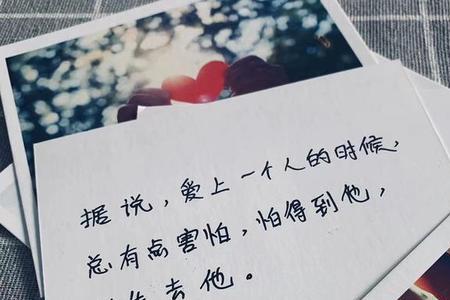 据说，爱上一个人的时候，
总有点害怕，怕得到他，
去他。